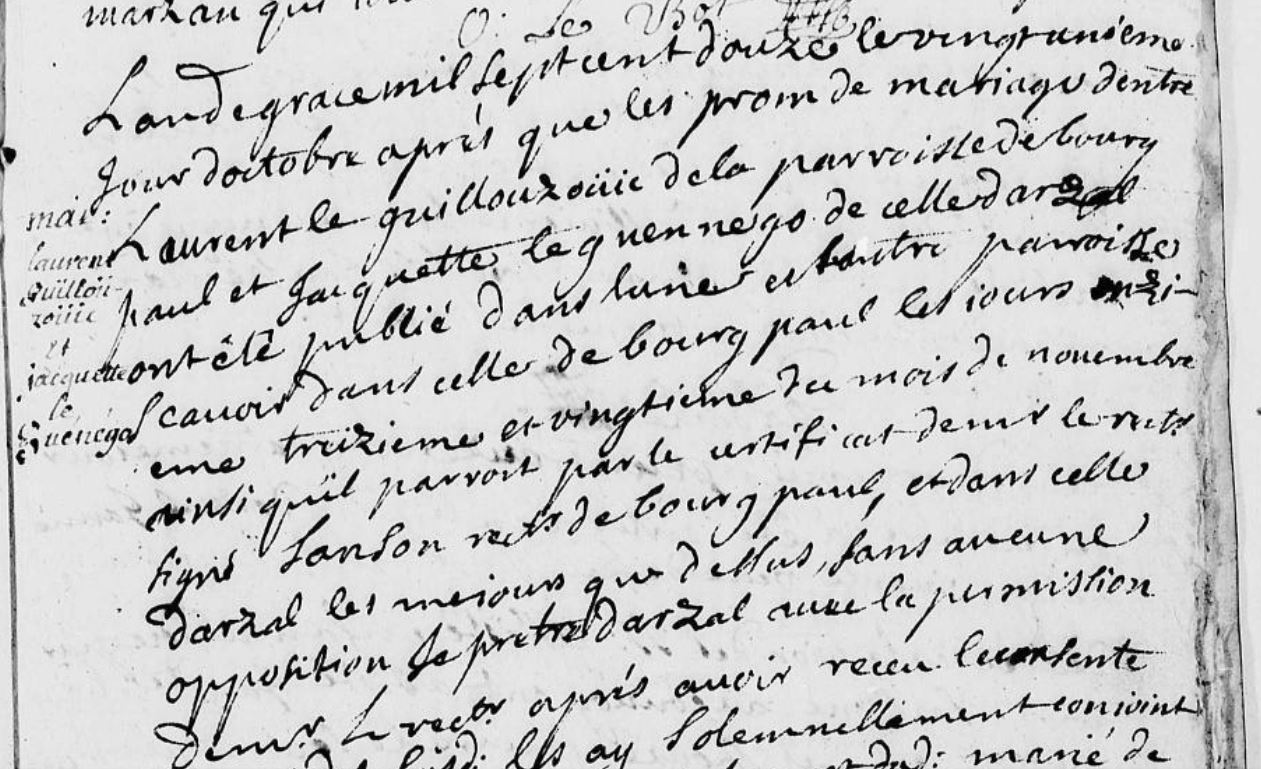 marzan qui
O: Le Bot
Landegrace mil sept cent douze le vingt unieme
Jour doctobre aprés que les prom de mariage dentre
mar: Laurent le guillouzoüic de la parroisse de bourg
laurent
Guilloü
zoüic
et
jacquette
le
Guénégo
paul et Jacquette le guennego de celle darzal
ont êtê publié dans lune et lautre parroisse
scavoir dans celle de bourg paul les iours onzi-
eme treizieme et vingtieme du mois de novembre
ainsi quïl parroit par le certificat de mr le rectr
signé Sanson rectr de bourg paul, et dans celle
darzal les me iours que dessus, sans aucune
opposition Je pretre darzal avec la permission
de mr. Le rectr aprés avoir receu le consente
les ay Solemnellement conioint
marié de